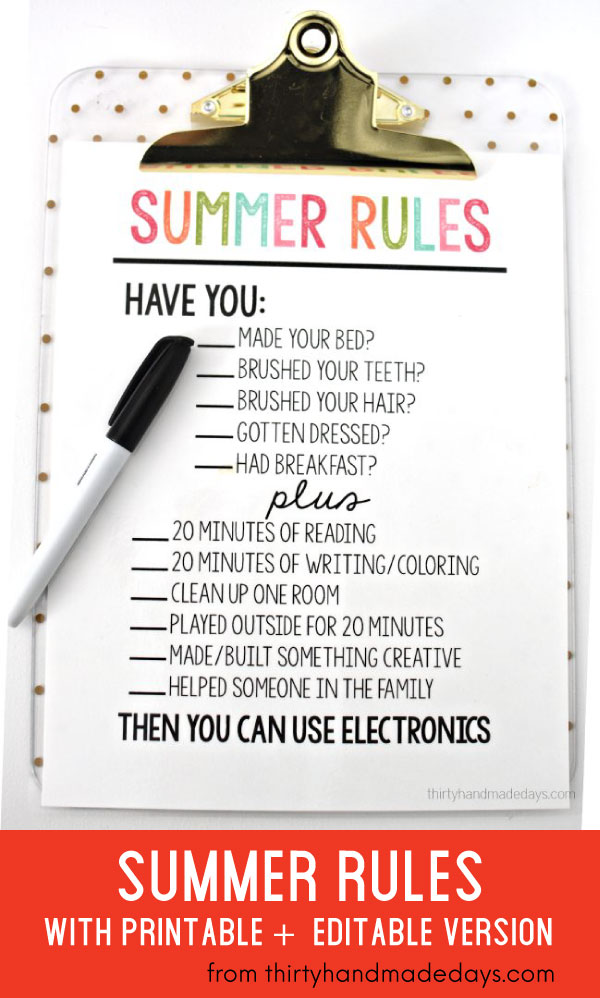 SUMMER RULES
HAVE YOU:
MADE YOUR BED?
BRUSHED YOUR TEETH?
BRUSHED YOUR HAIR?
GOTTEN DRESSED?
HAD BREAKFAST?
plus
20 MINUTES OF READING
20 MINUTES OF WRITING/COLORING
CLEAN UP ONE ROOM
PLAYED OUTSIDE FOR 20 MINUTES
MADE/BUILT SOMETHING CREATIVE
HELPED SOMEONE IN THE FAMILY
THEN YOU CAN USE ELECTRONICS
thirtyhandmadedays.com
SUMMER RULES
WITH PRINTABLE + EDITABLE VERSION
from thirtyhandmadedays.com